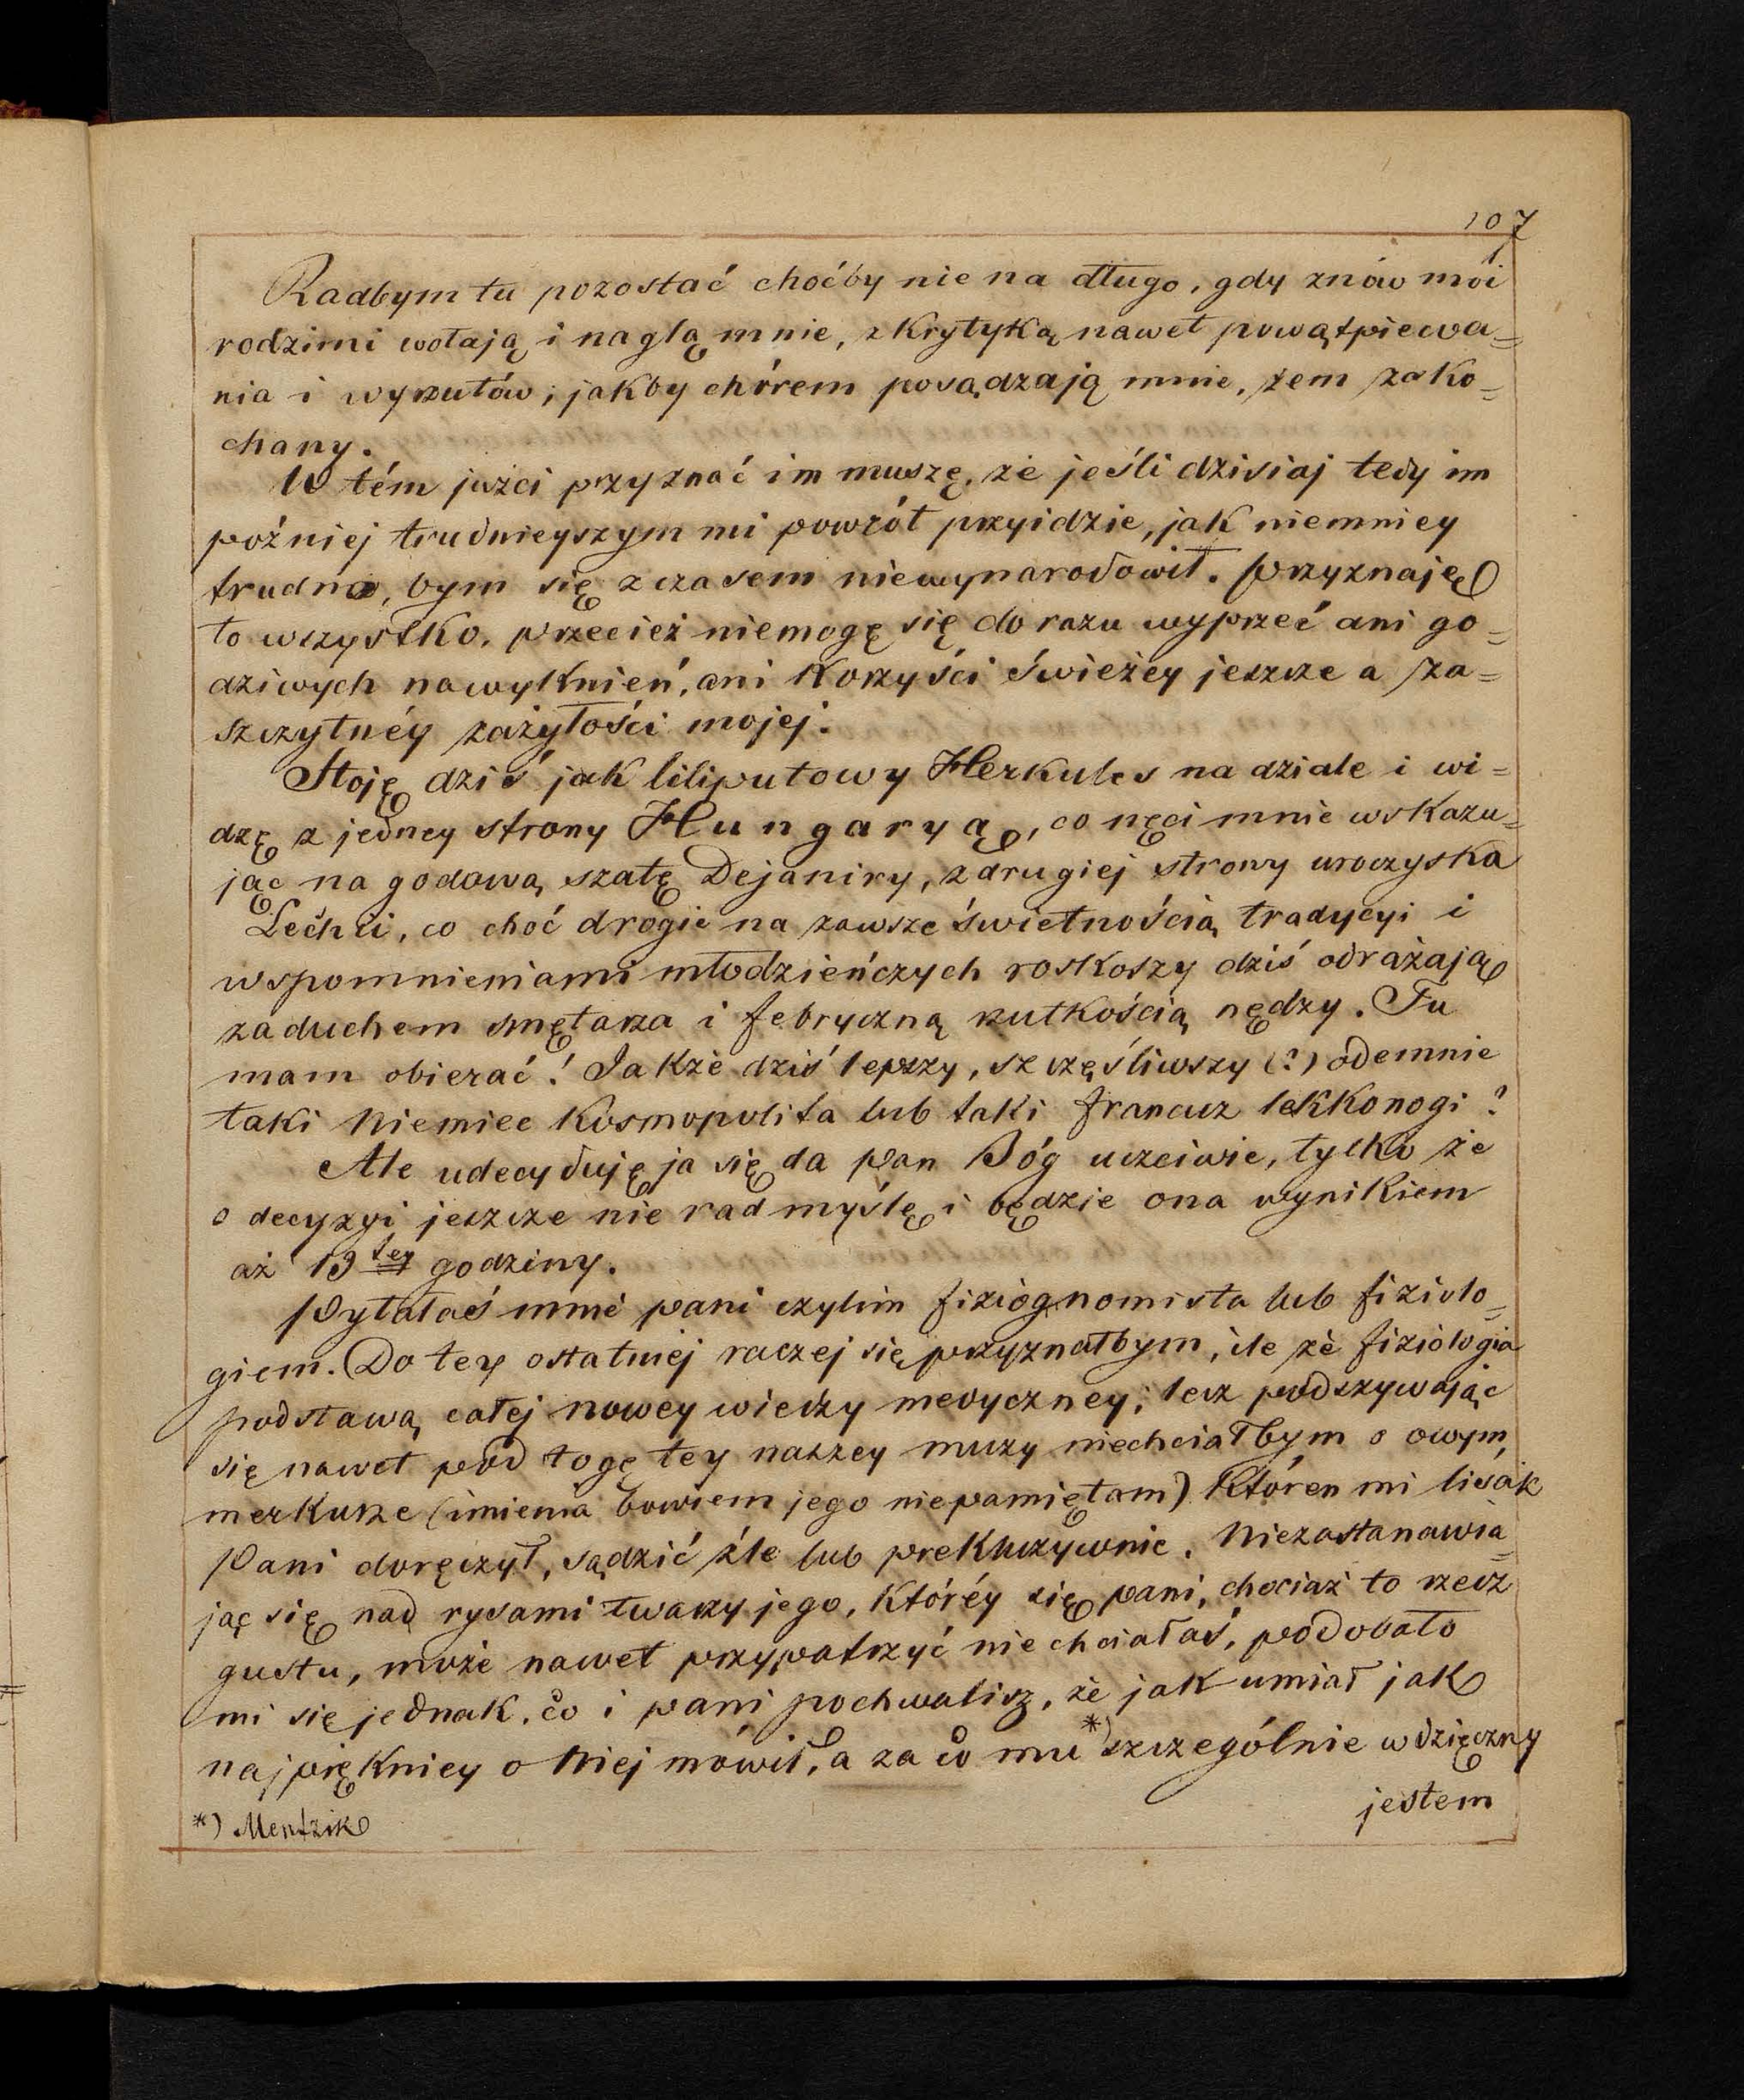 107
Radbym tu pozostać choćby nie na długo, gdy znów mói
rodzimi wołają i naglą mnie, z krytyką nawet powątpiewa=
nia i wyrzutów; jakby chórem posądzają mnie, żem zako=
chany.
W tém jużci przyznać im muszę, że jeśli dzisiaj tedy im
poźniej trudnieyszym mi powrót przyidzie, jak niemniey
trudno, bym się z czasem niewynarodowił. Przyznaję
to wszystko, przecież niemogę się do razu wyprzeć ani go=
dziwych nawyknień, ani korzyści świeżey jeszcze a za=
szczytnéy zażyłości mojej.
Stoję dziś jak liliputowy Herkules na dziale i wi=
dzę z jedney strony Hungaryą, co nęci mnie wskazu=
jąc na godową szatę Dejaniry, z drugiej strony uroczyska
Lechii, co choć drogie na zawsze świetnością tradycyi i
wspomnieniami młodzieńczych roskoszy dziś odrażają
zaduchem smętarza i febryczną rzutkością nędzy. Tu
mam obierać! Jakże dziś lepszy, szczęśliwszy (?) odemnie
taki Niemiec Kosmopolita lub taki francuz lekkonogi?
Ale udecyduję ja się da Pan Bóg uczciwie, tylko że
o decyzyi jeszcze nie rad myślę i będzie ona wynikiem
aż 13tey godziny.
Pytałaś mnie pani czylim fiziognomista lub fiziolo=
giem. Do tey ostatniej raczej się przyznałbym, ile że fiziologia
podstawą całej nowey wiedzy medyczney; lecz podszywając
się nawet pod togę tey naszey muzy niechciałbym o owym
merkurze (imienia bowiem jego niepamiętam) któren mi lisak
Pani doręczył, sądzić źle lub prekluzywnie. Niezastanawia=
jąc się nad rysami twarzy jego, któréy się pani, chociaż to rzecz
gustu, może nawet przypatrzyć nie chciałaś, podobało
mi się jednak, co i pani pochwalisz, że jak umiał jak
najpiękniey o Niej mówił, a za co mu *) szczególnie wdzięczny
jestem
*) Mentzik